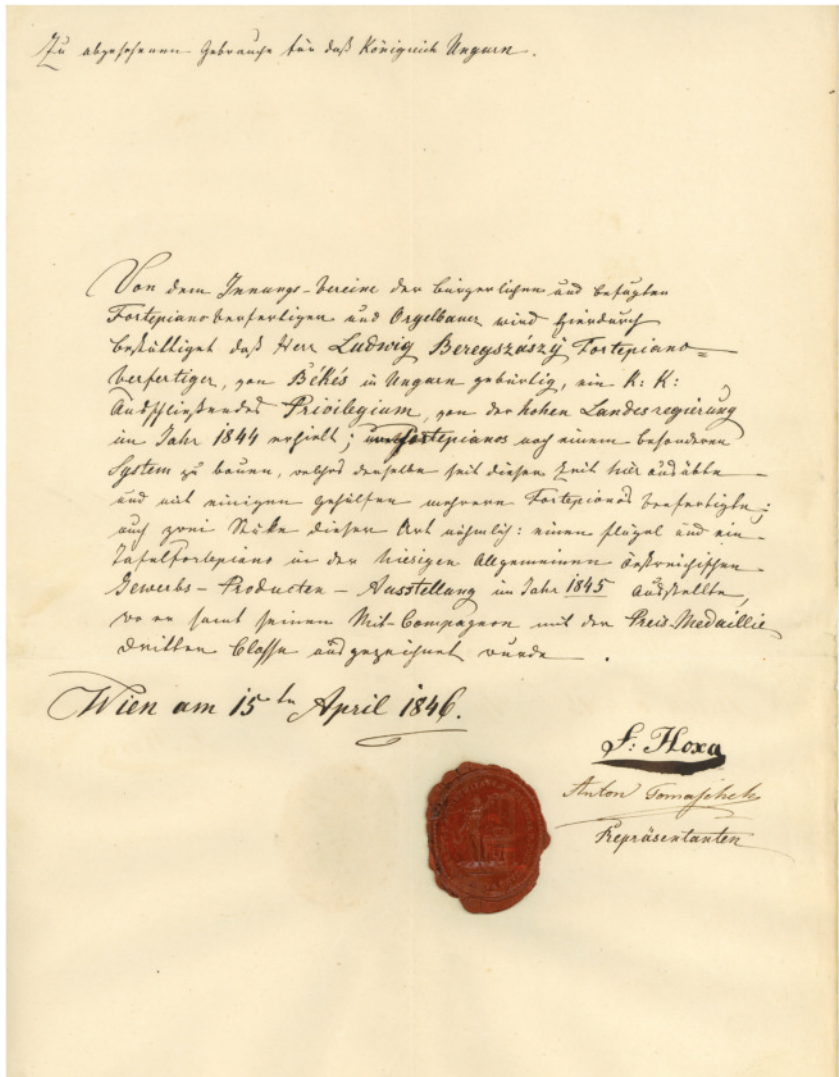 Zu abgesehenen Gebrauche für daß Königreich Ungarn.
Von dem Innungs-Vereine der bürgerlichen und befugten
Fortepiano Verfertigen und Orgelbauer wird hierdurch
bestättiget daß Herr Ludwig Beregszászÿ Fortepiano=
Verfertiger, von Békés in Ungarn gebürtig, ein K: K:
Ausschließendes Privilegium, von der hohen Landesregierung
im Jahr 1844 erhielt; Fortepianos nach einem besonderen
System zu bauen, welches derselbe seit dieser Zeit hier ausübte
und mit einigen Gehülfen mehrere Fortepiano's verfertigte;
auch zwei Stüke dieser Art nähmlich: einen Flügel und ein
Tafelfortepiano in der hiesigen Allgemeinen österreichischen
Gewerbs-Producten-Ausstellung im Jahr 1845 ausstellte,
wo er samt seinen Mit-Compagnon mit der Preis-Medaillie
dritten Classe ausgezeichnet wurde.
Wien am 15tn April 1846.
F: Hoxa
Anton Tomaschek
Repräsentanten